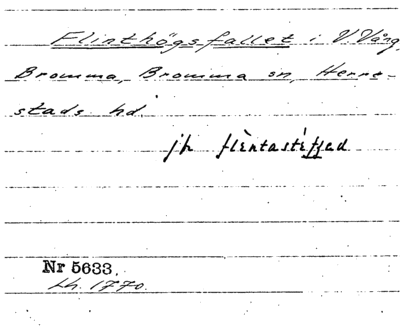 Flinthögsfallet i V. Vång,
Bromma, Bromma sn, Herre-
stads hd.
jfr flèntastéffad
Nr 5633.
Lh. 1770.